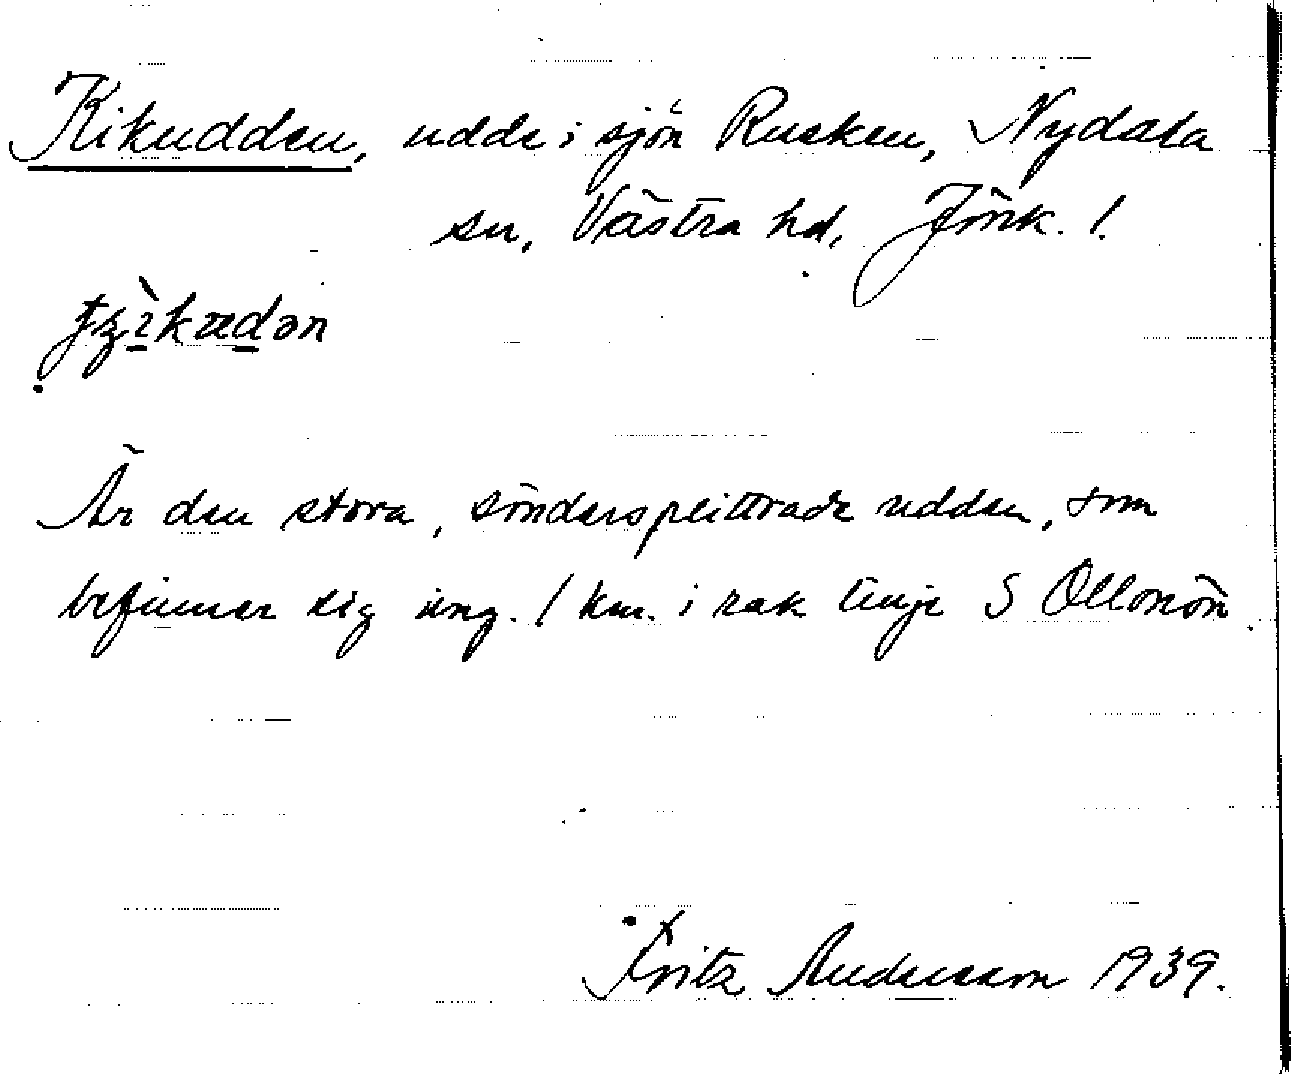 Kikudden, udde i sjön Rusken, Nydala
sn, Västra hd, Jönk. l.
Är den stora, söndersplittrade udden, som
befinner sig ung. 1 km. i rak linje S Ollonön.
Fritz Andersson 1939.